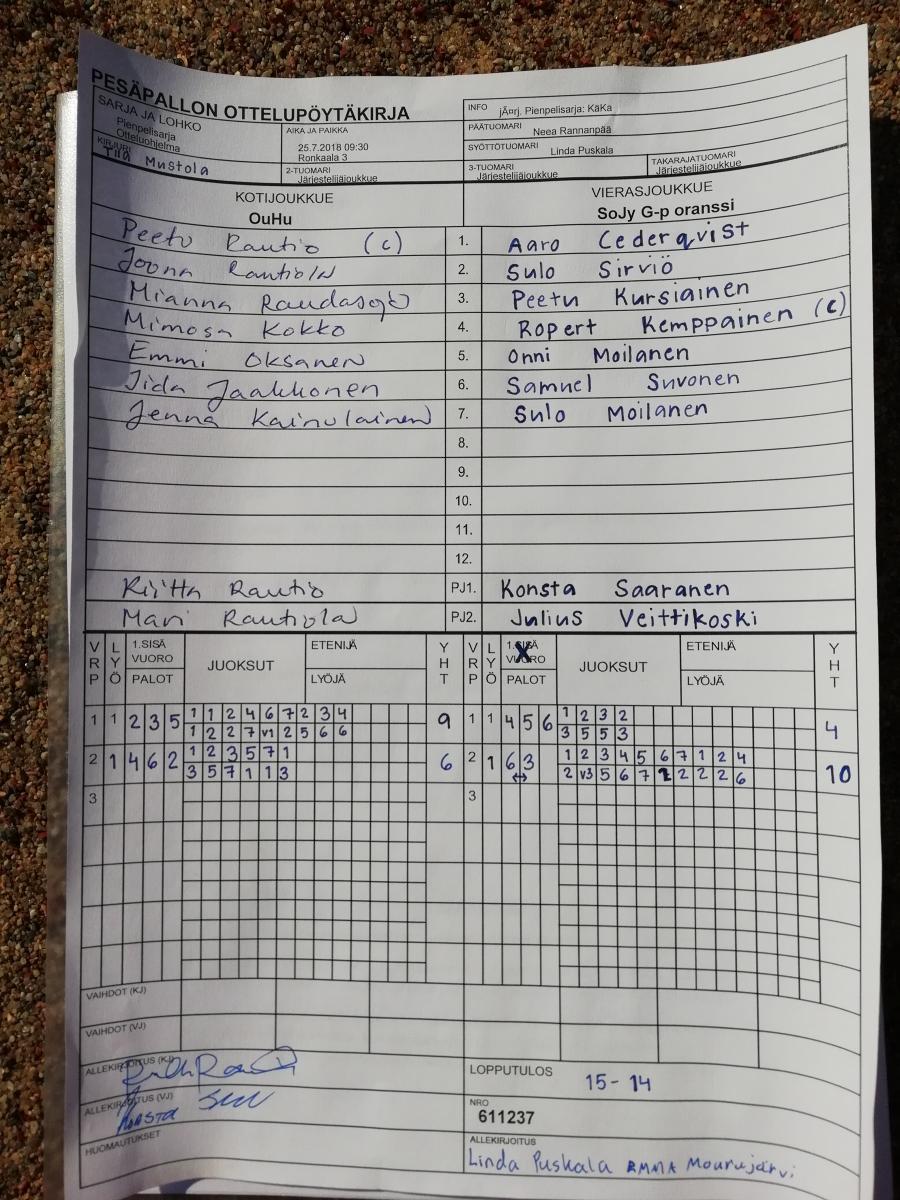 PESÄPALLON OTTELUPÖYTÄKIRJA
SARJA JA LOHKO
Pienpelisarja
Otteluohjelma
KIRJURI
Tiia Mustola
AIKA JA PAIKKA
25.7.2018 09:30
Ronkaala 3
2-TUOMARI
Järjestelijäjoukkue
INFO jÃ¤rj. Pienpelisarja: KäKa
PÄÄTUOMARI Neea Rannanpää
SYÖTTÖTUOMARI Linda Puskala
3-TUOMARI
Järjestelijäjoukkue
TAKARAJATUOMARI
Järjestelijäjoukkue
KOTIJOUKKUE
OuHu
VIERASJOUKKUE
SoJy G-p oranssi
Peetu Rautio (c) 1. Aaro Cederqvist
Joona Rautiola 2. Sulo Sirviö
Mianna Raudasoja 3. Peetu Kursiainen
Mimosa Kokko 4. Ropert Kemppainen (c)
Emmi Oksanen 5. Onni Moilanen
Iida Jaakkonen 6. Samuel Suvonen
Jenna Kainulainen 7. Sulo Moilanen
8.
9.
10.
11.
12.
Riitta Rautio PJ1. Konsta Saaranen
Mari Rautiola PJ2. Julius Veittikoski
VRP LYÖ 1.SISÄ VUORO PALOT JUOKSUT ETENIJÄ LYÖJÄ YHT VRP LYÖ 1.SISÄ VUORO X PALOT JUOKSUT ETENIJÄ LYÖJÄ YHT
1 1 2 3 5 1 1 2 4 6 7 2 3 4 9 1 1 4 5 6 1 2 3 2 4
1 2 2 7 v1 2 5 6 6 3 5 5 3
2 1 4 6 2 1 2 3 5 7 1 6 2 1 6 3 1 2 3 4 5 6 7 1 2 4 10
3 5 7 1 1 3 ↔ 2 v3 5 6 7 2 2 2 2 6
3 3
VAIHDOT (KJ)
VAIHDOT (VJ)
ALLEKIRJOITUS (KJ)
ALLEKIRJOITUS (VJ)
HUOMAUTUKSET
LOPPUTULOS 15-14
NRO
611237
ALLEKIRJOITUS
Linda Puskala EMMA Mourujärvi